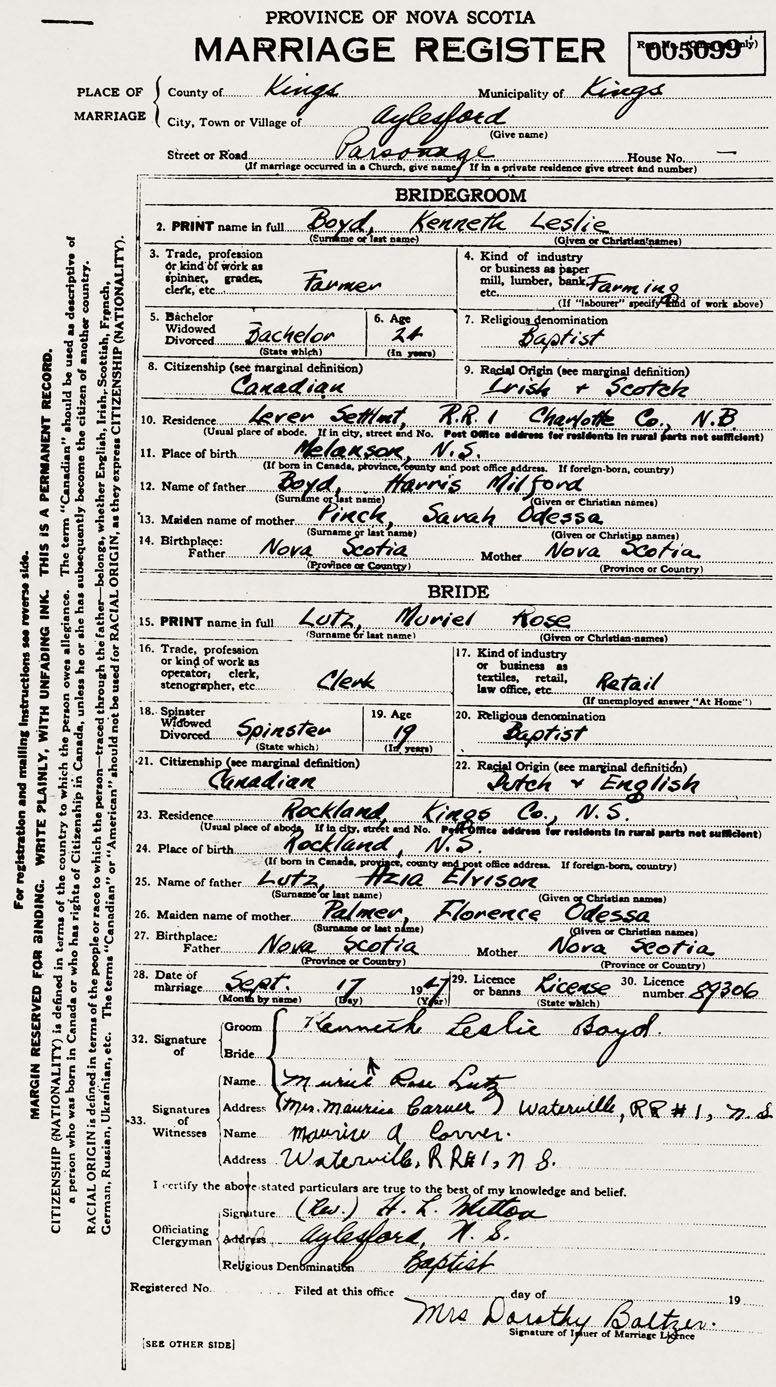 PROVINCE OF NOVA SCOTIA
MARRIAGE REGISTER
005099
PLACE OF MARRIAGE
County of Kings Municipality of Kings
City, Town or Village of Aylesford
(Give name)
Street or Road Parsonage House No. —
(If marriage occurred in a Church, give name. If in a private residence give street and number)
BRIDEGROOM
2. PRINT name in full Boyd, Kenneth Leslie
(Surname or last name) (Given or Christian names)
3. Trade, profession or kind of work as spinner, grader, clerk, etc. Farmer
4. Kind of industry or business as paper mill, lumber, bank, etc. Farming
(If "labourer" specify kind of work above)
5. Bachelor Widowed Divorced Bachelor
(State which)
6. Age 24
(In years)
7. Religious denomination Baptist
8. Citizenship (see marginal definition) Canadian
9. Racial Origin (see marginal definition) Irish + Scotch
10. Residence Lever Settlmt, R.R.1 Charlotte Co., N.B
(Usual place of abode. If in city, street and No. Post Office address for residents in rural parts not sufficient)
11. Place of birth Melanson, N.S.
(If born in Canada, province, county and post office address. If foreign-born, country)
12. Name of father Boyd, Harris Milford
(Surname or last name) (Given or Christian names)
13. Maiden name of mother Pinch, Sarah Odessa
(Surname or last name) (Given or Christian names)
14. Birthplace: Father Nova Scotia Mother Nova Scotia
(Province or Country) (Province or Country)
BRIDE
15. PRINT name in full Lutz, Muriel Rose
(Surname or last name) (Given or Christian names)
16. Trade, profession or kind of work as operator, clerk, stenographer, etc Clerk
17. Kind of industry or business as textiles, retail, law office, etc. Retail
(If unemployed answer "At Home")
18. Spinster Widowed Divorced Spinster
(State which)
19. Age 19
(In years)
20. Religious denomination Baptist
21. Citizenship (see marginal definition) Canadian
22. Racial Origin (see marginal definition) Dutch + English
23. Residence Rockland, Kings Co., N.S.
(Usual place of abode. If in city, street and No. Post Office address for residents in rural parts not sufficient)
24. Place of birth Rockland, N.S.
(If born in Canada, province, county and post office address. If foreign-born, country)
25. Name of father Lutz, Elvison
(Surname or last name) (Given or Christian names)
26. Maiden name of mother Palmer, Florence Odessa
(Surname or last name) (Given or Christian names)
27. Birthplace: Father Nova Scotia Mother Nova Scotia
(Province or Country) (Province or Country)
28. Date of marriage Sept. 17 1947
(Month by name) (Day) (Year)
29. Licence or banns License
(State which)
30. Licence number 89306
32. Signature of
Groom Kenneth Leslie Boyd.
Bride
33. Signatures of Witnesses
Name Muriel Rose Lutz
Address (Mrs. Maurice Carver) Waterville, RR # 1, N.S
Name Maurice A Carver.
Address Waterville, R R#1, N S.
I certify the above stated particulars are true to the best of my knowledge and belief.
Officiating Clergyman
Signature (Rev.) H. L. Mitton
Address Aylesford, N. S.
Religious Denomination Baptist
Registered No. Filed at this office day of 19
Mrs Dorothy Baltzer.
Signature of Issuer of Marriage Licence
[SEE OTHER SIDE]
For registration and mailing instructions see reverse side.
MARGIN RESERVED FOR BINDING. WRITE PLAINLY, WITH UNFADING INK. THIS IS A PERMANENT RECORD.
CITIZENSHIP (NATIONALITY) is defined in terms of the country to which the person owes allegiance. The term "Canadian" should be used as descriptive of
a person who was born in Canada or who has rights of Citizenship in Canada, unless he or she has subsequently become the citizen of another country.
RACIAL ORIGIN is defined in terms of the people or race to which the person—traced through the father—belongs, whether English, Irish, Scottish, French,
German, Russian, Ukrainian, etc. The terms "Canadian" or "American" should not be used for RACIAL ORIGIN, as they express CITIZENSHIP (NATIONALITY).